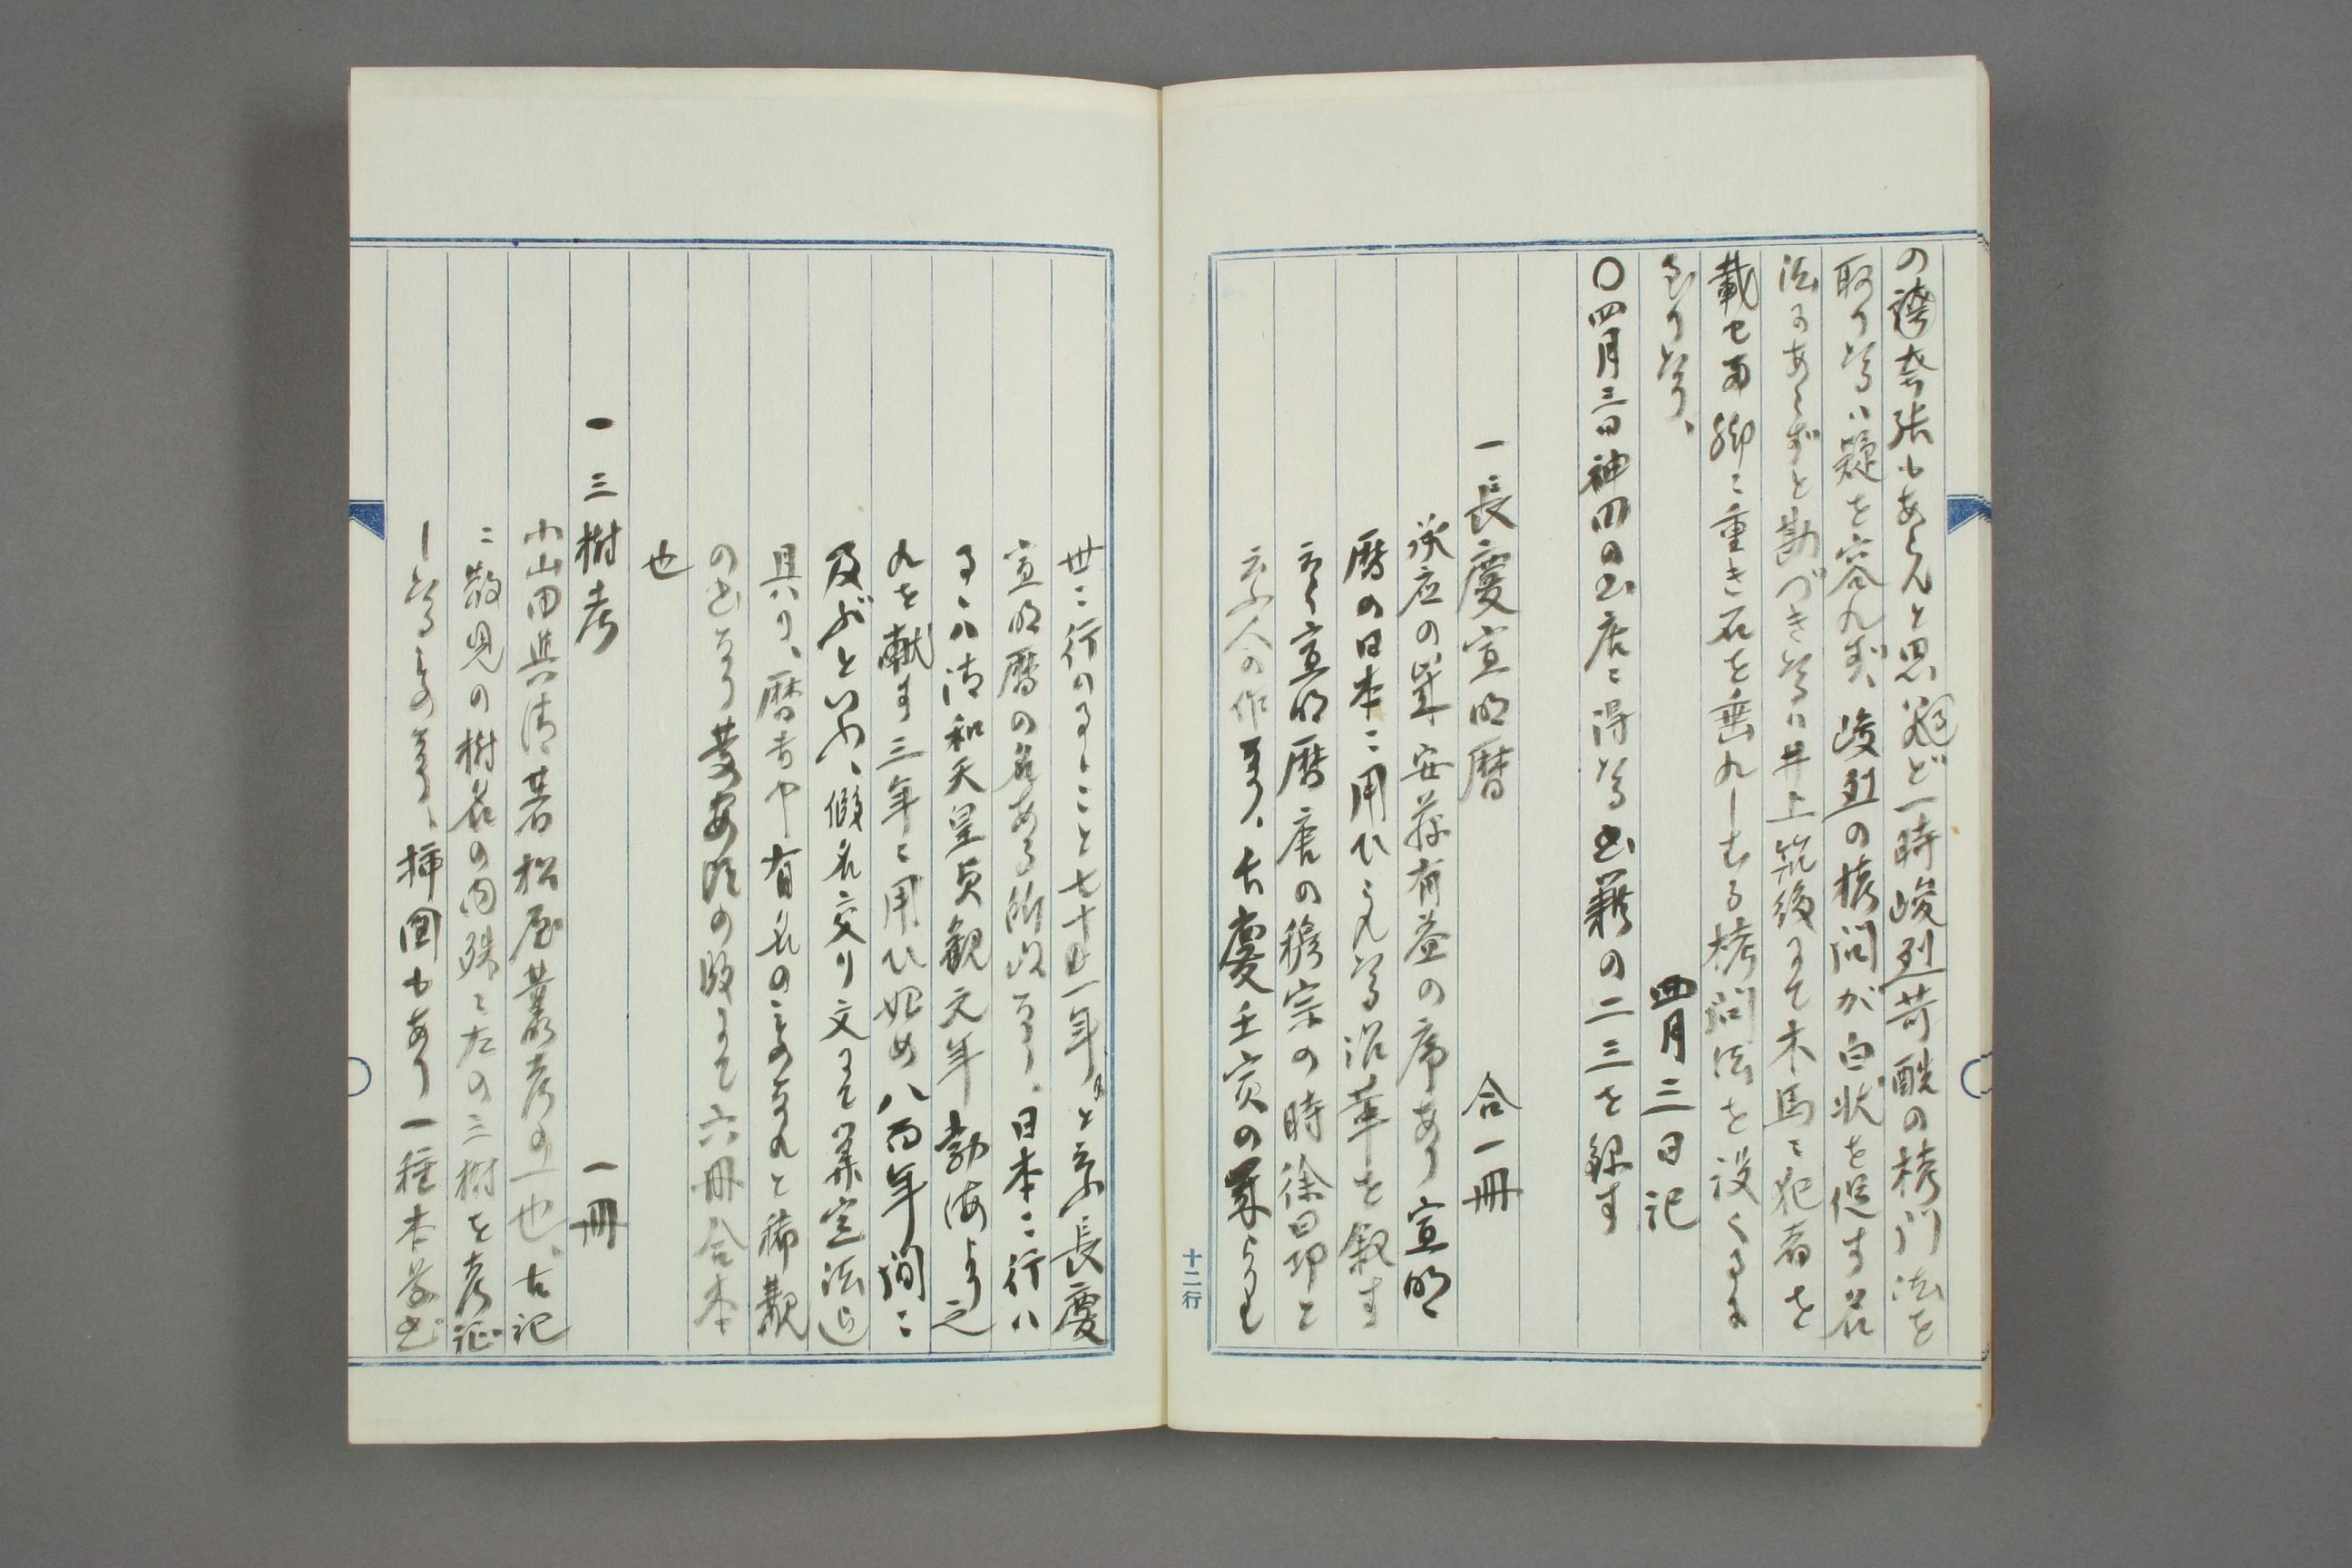 の誇張もあらんと思へど一時峻烈苛酷の拷問法を
取りたるハ疑を容れず、峻烈の拷問が白状を促す名
法にあらずと勘づきたるハ井上筑後にて木馬ニ犯者を
載セ両脚ニ重き石を垂れしむる拷問法を設くるに
至りたり、
四月三日記
〇四月三日神田の書店ニ得たる書籍の二三を録す
一長慶宣明暦 合一冊
承応の年安藤有益の序あり宣明
暦の日本ニ用ひられたる沿革を叙す
云く宣明暦唐の穆宗の時徐昂と
云ふ人の作なり、長慶壬寅の年よりも
世ニ行ハるゝこと七十一年と云ふ長慶
宣明暦の名ある所以なり、日本ニ行ハ
るゝハ清和天皇貞観元年勃海より之
れを献す三年ニ用ひ始め八百年間ニ
及ぶといふ、假名交り文にて算定法を
具ハり、暦書中有名のものなれと稀覯
の書なり 六冊合本
也
一三樹考 一冊
小山田與清著松屋叢考の一也、古記
ニ散見の樹名の内殊ニ左の三樹を考証
したるものなり、挿図もあり一種本草書
十二行